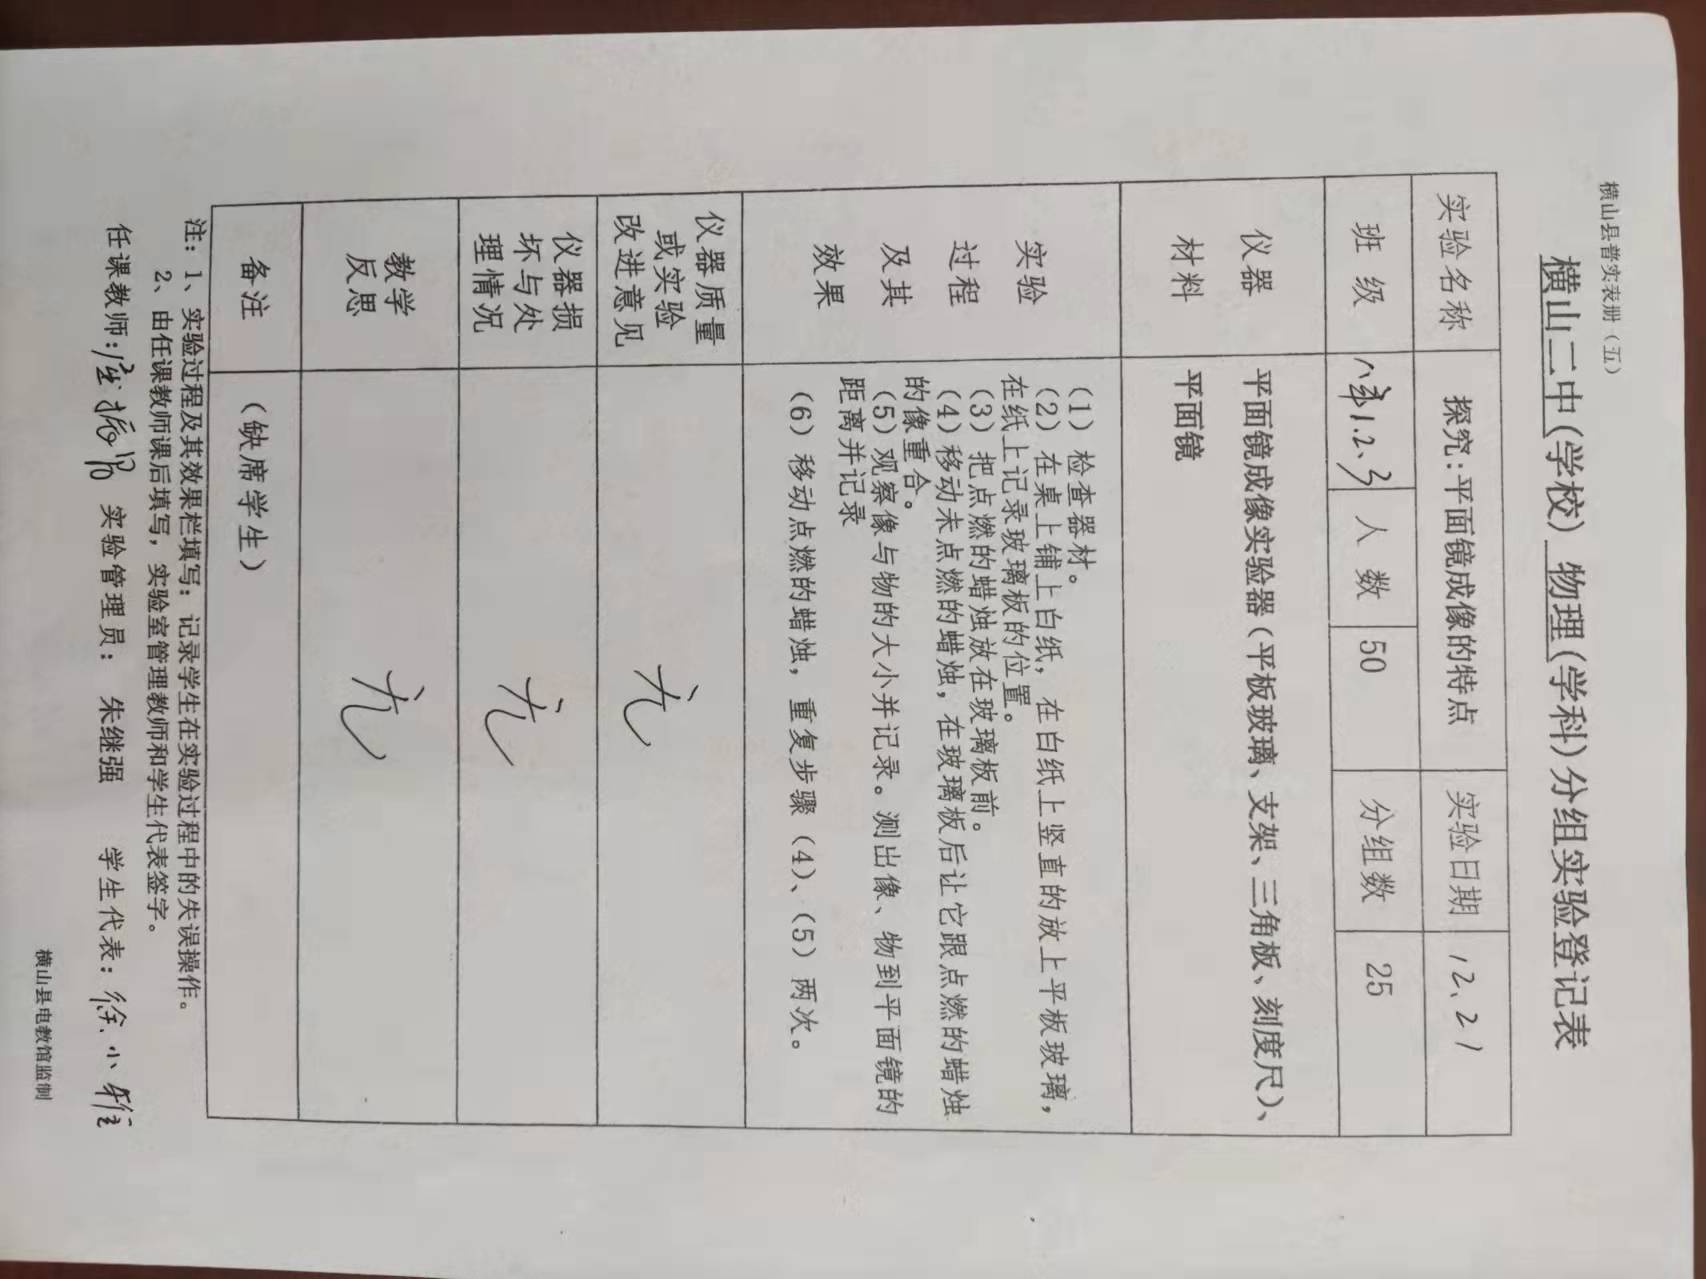 横山县普实表册（五）
横山二中(学校) 物理(学科)分组实验登记表
实验名称 探究:平面镜成像的特点 实验日期 12、21
班级 八年1.2、3 人数 50 分组数 25
仪器
材料
平面镜成像实验器(平板玻璃、支架、三角板、刻度尺)、
平面镜
实验
过程
及其
效果
(1) 检查器材。
(2) 在桌上铺上白纸，在白纸上竖直的放上平板玻璃，
在纸上记录玻璃板的位置。
(3) 把点燃的蜡烛放在玻璃板前。
(4) 移动未点燃的蜡烛，在玻璃板后让它跟点燃的蜡烛
的像重合。
(5) 观察像与物的大小并记录。测出像、物到平面镜的
距离并记录
(6) 移动点燃的蜡烛，重复步骤（4)、(5）两次。
仪器质量
或实验
改进意见
无
仪器损
坏与处
理情况
无
教学
反思
无
备注 (缺席学生)
注：1、实验过程及其效果栏填写：记录学生在实验过程中的失误操作。
2、由任课教师课后填写，实验室管理教师和学生代表签字。
任课教师: 实验管理员： 朱继强 学生代表: 徐小雅
横山县电教馆监制